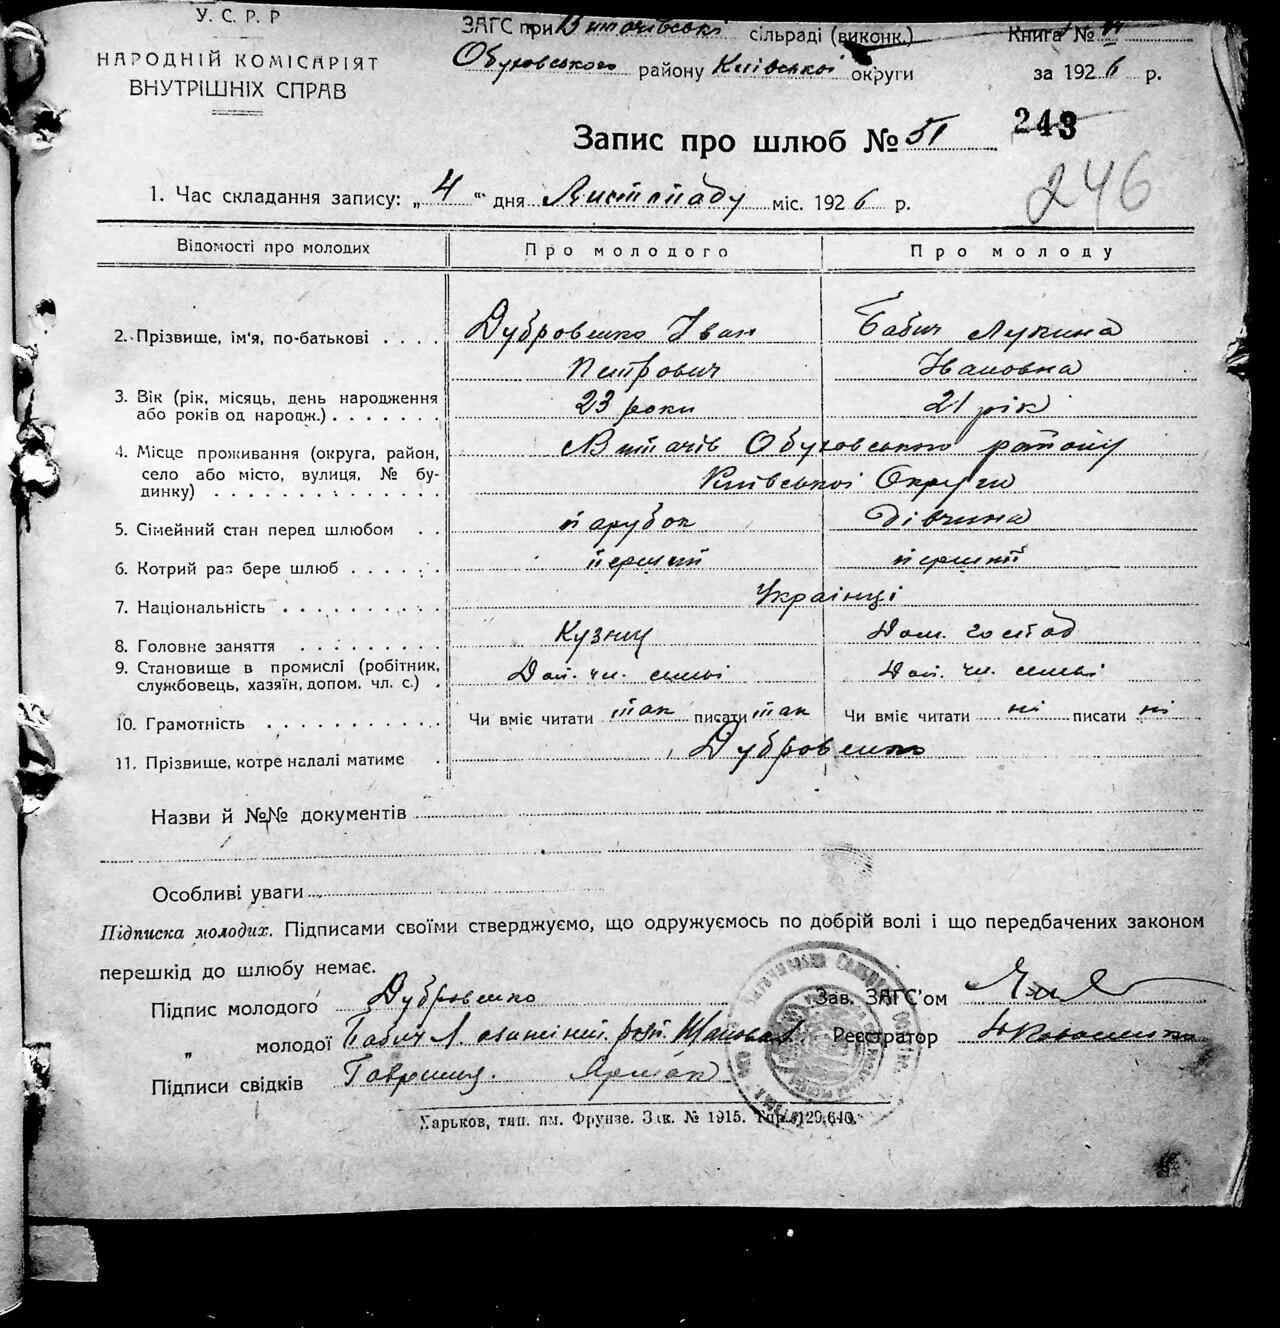 У. С. Р. Р
НАРОДНІЙ КОМІСАРІЯТ
ВНУТРІШНІХ СПРАВ
ЗАГС при Витачівські сільраді (виконк.) Книга №
Обуховського району Київської округи за 1926 р.
Запис про шлюб № 51 243
246
1. Час складання запису: „4“ дня Листопаду міс. 1926 р.
Відомості про молодих Про молодого Про молоду
2. Прізвище, ім'я, по-батькові . . . . Дубровенко Іван Бабич Лукина
Петрович Івановна
3. Вік (рік, місяць, день народження
або років од народж.) . . . . . . 23 роки 21 рік
4. Місце проживання (округа, район,
село або місто, вулиця, № бу-
динку) . . . . . . . . . . . . . . Витачів Обуховського району
Київської Округи
5. Сімейний стан перед шлюбом . . парубок дівчина
6. Котрий раз бере шлюб . . . . . . перший перший
7. Національність . . . . . . . . . . Українці
8. Головне заняття . . . . . . . . . Кузнец Дом. господ
9. Становище в промислі (робітник,
службовець, хазяїн, допом. чл. с.) . Доп. чл. семьї Доп. чл. семьї
10. Грамотність . . . . . . . . . . . Чи вміє читати так писати так Чи вміє читати ні писати ні
11. Прізвище, котре надалі матиме . Дубровенко
Назви й №№ документів
Особливі уваги
Підписка молодих. Підписами своїми стверджуємо, що одружуємось по добрій волі і що передбачених законом
перешкід до шлюбу немає.
Підпис молодого Дубровенко Зав. ЗАГС'ом
„ молодої Бабич Л. Реєстратор
Підписи свідків Гаврилиц.
Харьков, тип. им. Фрунзе. Зак. № 1915. Тир. 129.640.